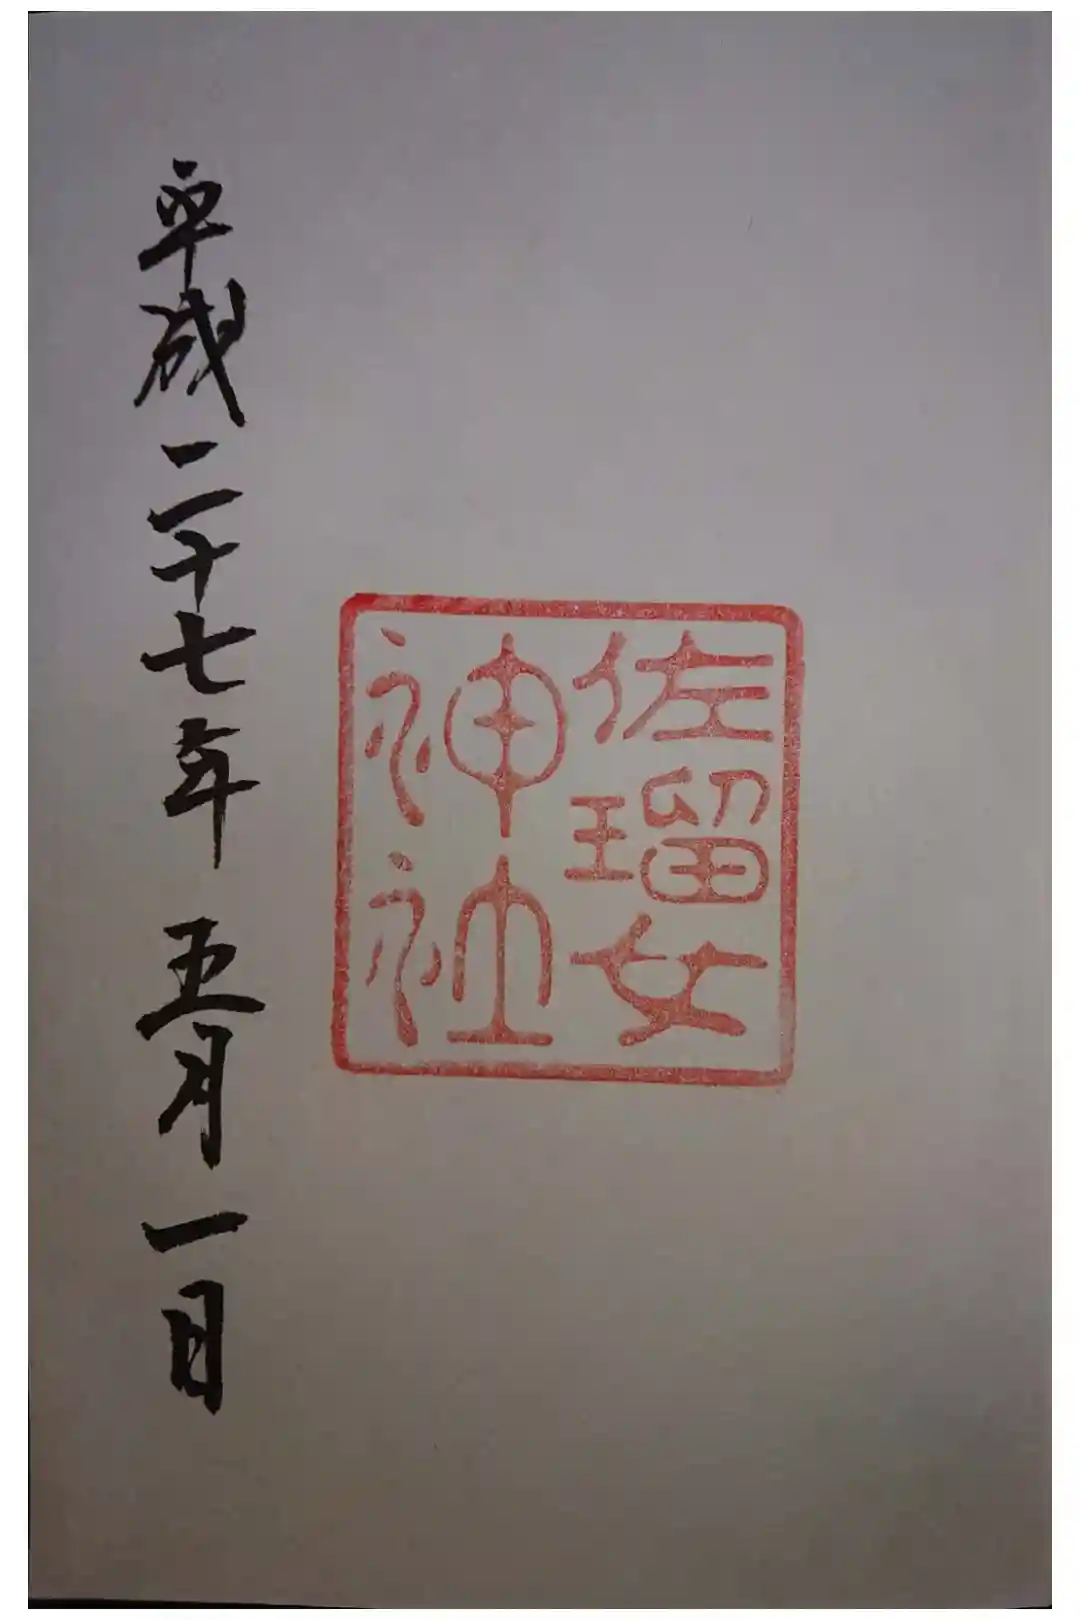 佐瑠女
神社
平成二十七年 五月一日